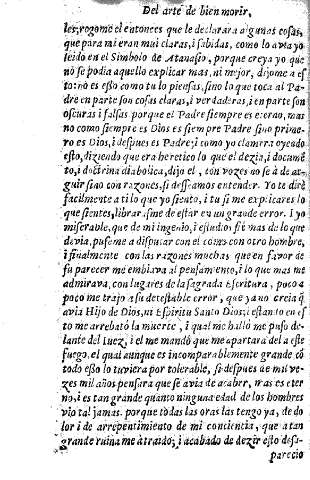 Del arte de bien morir,
les, rogome el entonces que le declarara algunas cosas,
que para mi eran mui claras, i sabidas, como lo avia yo
leido en el Simbolo de Atanasio, porque creya yo que
no se podia aquello explicar mas, ni mejor, dijome a es
to: no es esto como tu lo piensas, sino lo que toca al Pa-
dre en parte son cosas claras, i verdaderas, i en parte son
oscuras i falsas porque el Padre siempre es eterno, mas
no como siempre es Dios es siempre Padre sino prime-
ro es Dios, i despues es Padre; i como yo clamera oyedo
esto, diziendo que era heretico lo que el dezia, i docume
to, i doctrina diabolica, dijo el, con vozes no se à de ar-
guir sino con razones, si desseamos entender. Yo te dirè
facilmente a ti lo que yo siento, i tu si me explicares lo
que sientes, librarasme de estar en un grande error. I yo
miserable, que de mi ingenio, i estudios fiè mas de lo que
devia, puseme a disputar con el como con otro hombre,
i finalmente con las razones muchas que en favor de
su parecer me embiava al pensamiento, i lo que mas me
admirava, con lugares de la sagrada Escritura, poco a
poco me trajo a su detestable error, que ya no creia q̃
avia Hijo de Dios, ni Espiritu Santo Dios; i estando en es
to me arrebatò la muerte, i qual me hallò me puso de-
lante del Iuez, i el me mandò que me apartara del a este
fuego. el qual aunque es incomparablemente grande cõ
todo esso lo tuviera por tolerable, si despues de mil ve-
zes mil años pensara que se avia de acabar, mas es eter
no, i es tan grande quanto ninguna edad de los hombres
vio tal jamas. porque todas las oras las tengo ya, de do
lor i de arrepentimiento de mi conciencia, que a tan
grande ruina me à traido; i acabado de dezir esto desa-
parecio